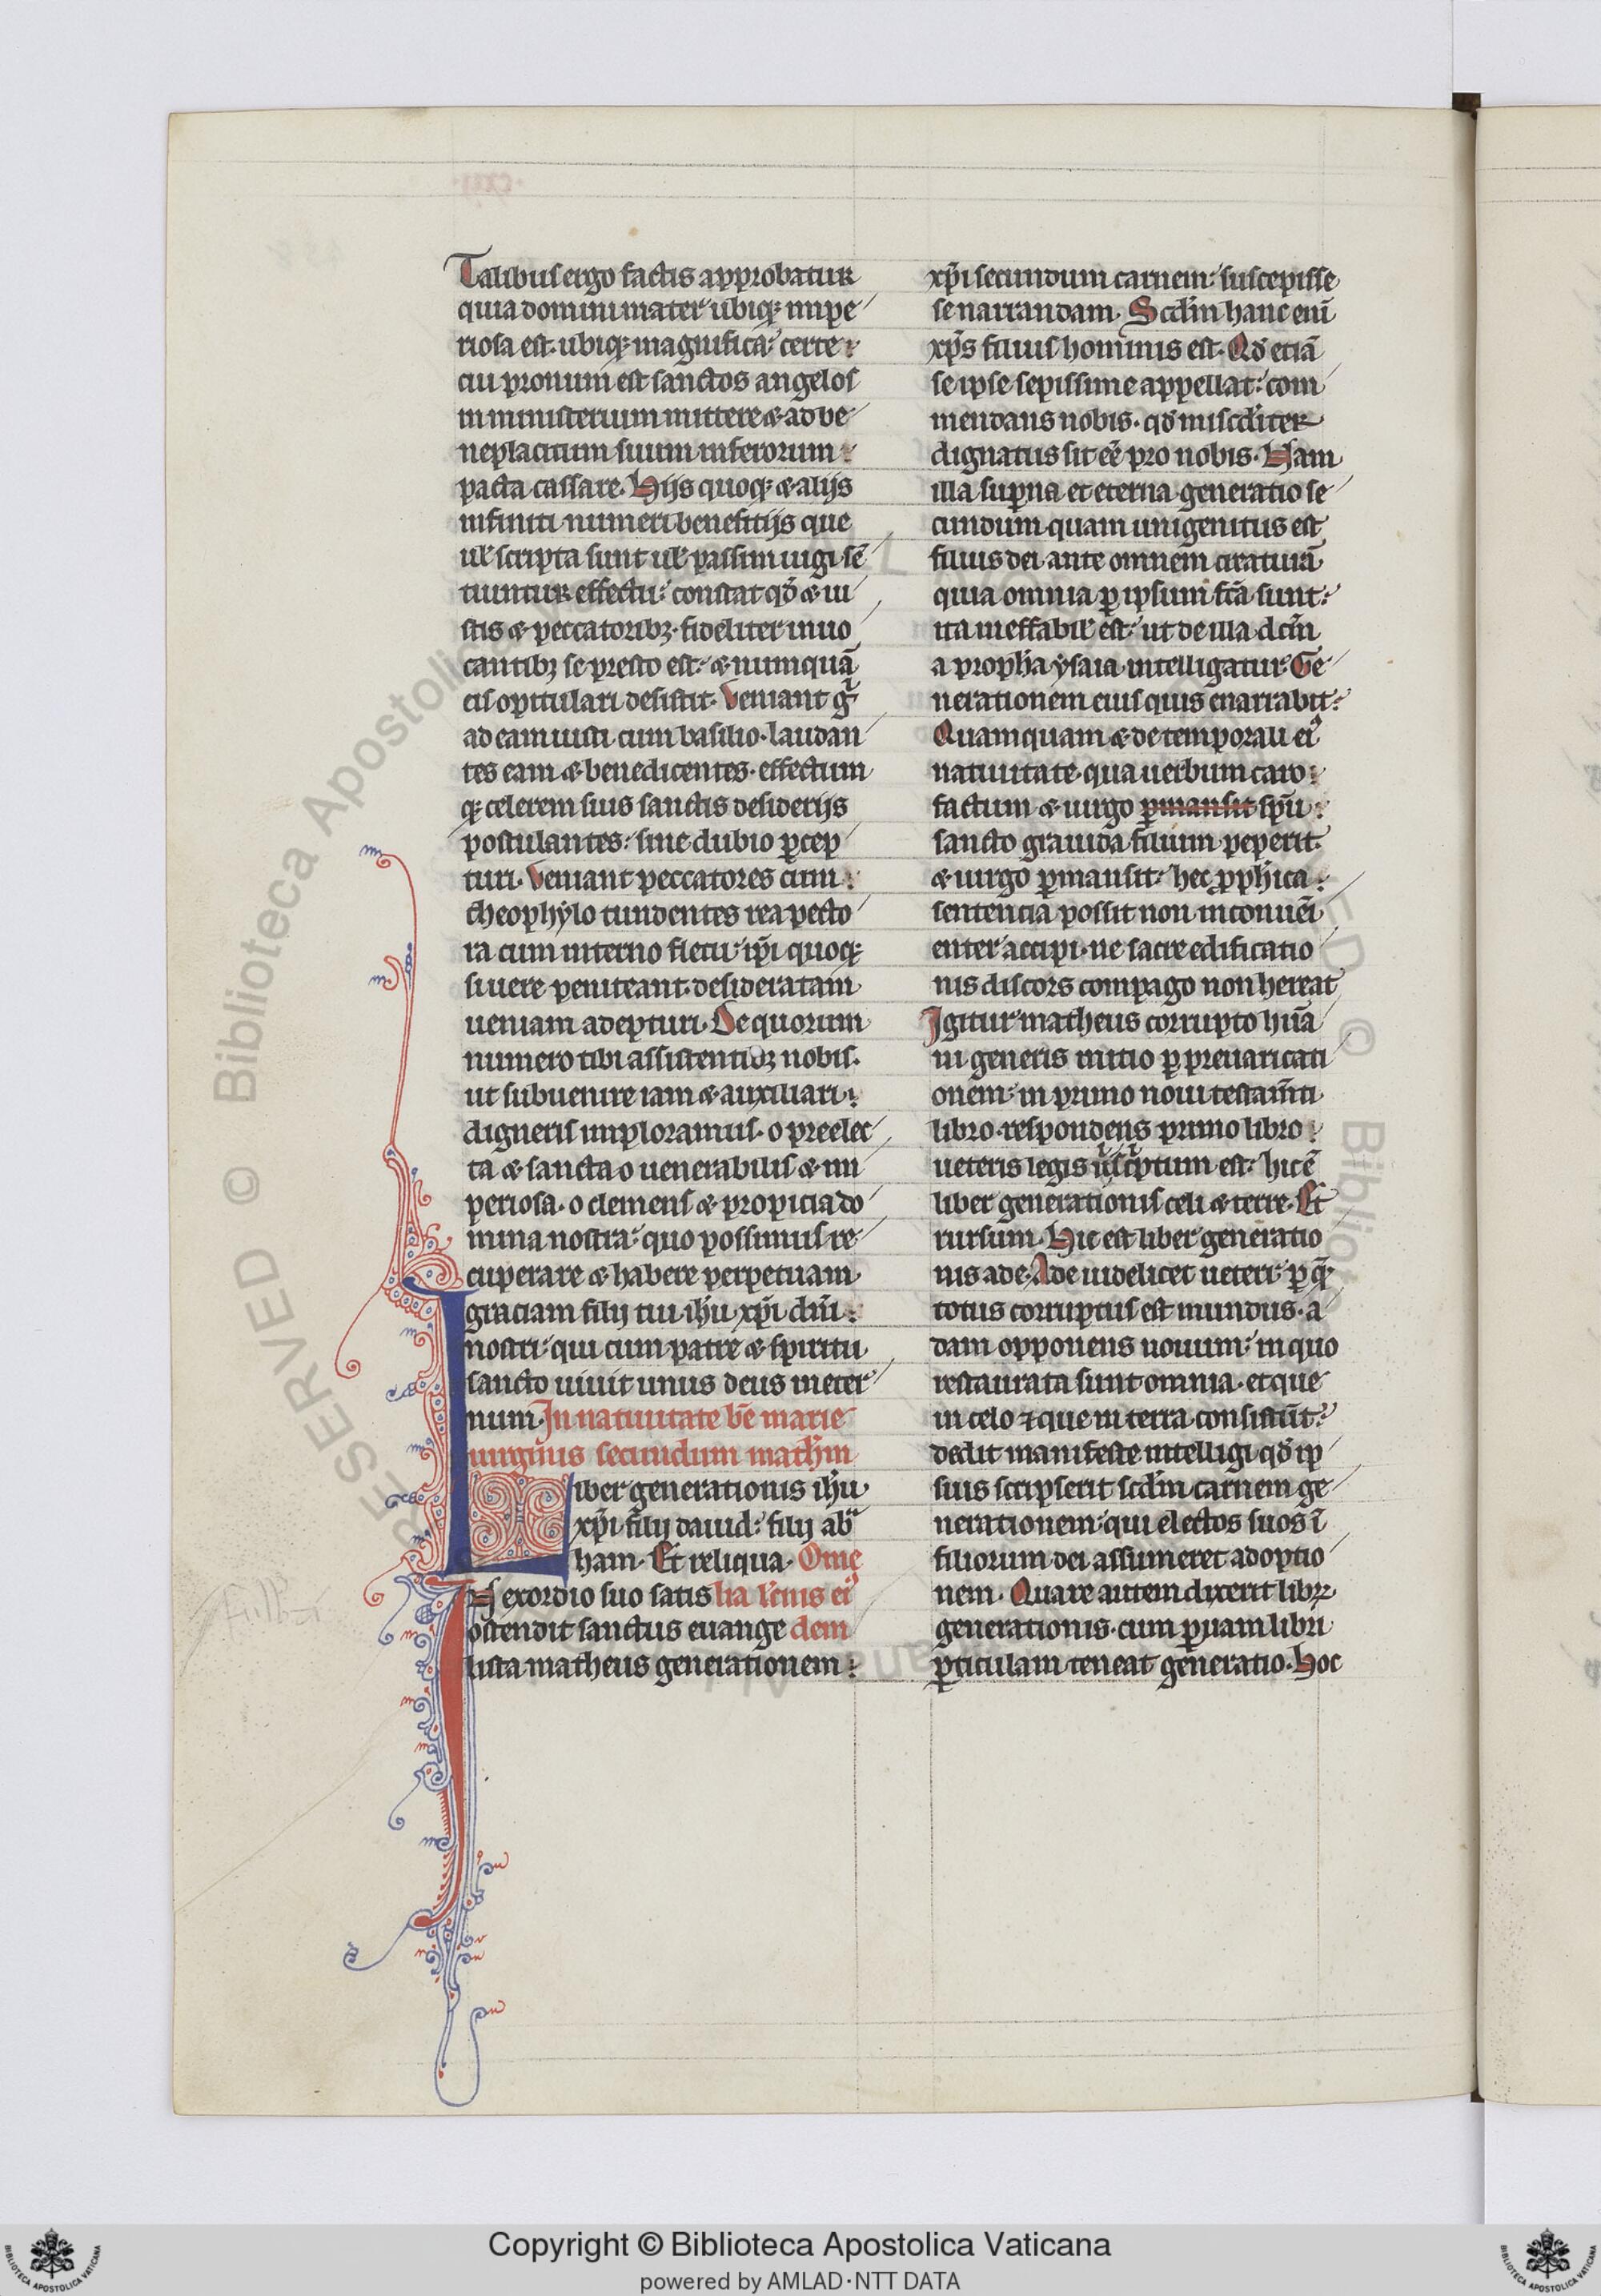 Talibus ergo factis approbatur
quia domini mater ubiq; impe
riosa est. ubiq; magnifica: certe
cui pronum est sanctos angelos
in ministerium mittere & ad be
neplacitum suum inferorum
pacta cassare. Hijs quoq; & alijs
infiniti numeri benefitijs que
ul̄ scripta sunt ul̄ passim iugi sē
tiuntur effectu: constat qd̄ & iu
stis & peccatoribꝫ. fideliter inuo
cantibꝫ se presto est: & numquā
eis opitulari desistit. Veniant gͦ
ad eam iusti cum basilio. laudan
tes eam & benedicentes. effectum
q; celerem suis sanctis desiderijs
postulantes: sine dubio ꝑcep
turi. Veniant peccatores cum
theophylo tundentes rea pecto
ra cum interno fletu: ip̄i quoq;
si uere peniteant. desideratam
ueniam adepturi. De quorum
numero tibi assistentibꝫ nobis.
ut subuenire iam & auxiliari
digneris imploramus. o preelec
ta & sancta o uenerabilis & im
periosa. o clemens & propicia do
mina nostra: quo possimus re
cuperare & habere perpetuam
graciam filij tui ih̄u xp̄i dn̄i
nostri: qui cum patre & spiritu
sancto uiuit unus deus in eter
num. In natiuitate bē marie
uirginis secundum math̄m
Liber generationis ih̄u
xp̄i filij dauid: filij abͣ
ham. Et reliqua. Ome
IN exordio suo satis lia l̄cius eiꝰ
ostendit sanctus euange dem
lista matheus generationem
xp̄i secundum carnem: suscepisse
se narrandam. Scd̄m hanc eni̅
xp̄s filius hominis est. Qd̄ etiā
se ipse sepissime appellat: com
mendans nobis. qd̄ misc̄diter
dignatus sit eē pro nobis. Nam
illa sup̄na et eterna generatio se
cundum quam unigenitus est
filius dei ante omnem creaturā
quia omnia ꝑ ipsum fc̄a sunt:
ita ineffabil̄ est: ut de illa dc̄m
a proph̄a ysaia intelligatur: Ge
nerationem eius quis enarrabit:
Quamquam & de temporali eiꝰ
natiuitate. qua uerbum caro
factum & uirgo ꝑmansit sp̄u
sancto grauida filium peperit.
& uirgo ꝑmansit: hec ꝓph̄ica
sentencia possit non inconuēi
enter accipi. ne sacre edificatio
nis discors compago non hereat
Igitur matheus corrupto hūa
ni generis initio ꝑ preuaricati
onem: in primo noui testam̄ti
libro. respondens primo libro
ueteris legis ī sc̄ptum est: hic ē
liber generationis celi & terre. Et
rursum. Hic est liber generatio
nis ade. Ade uidelicet ueteri: ꝑ q̄
totus corruptus est mundus. a
dam opponens nouum: in quo
restaurata sunt omnia. et que
in celo ⁊ que in terra consistūt:
dedit manifeste intelligi qd̄ ip
sius scripserit scd̄m carnem ge
nerationem: qui electos suos ī
filiorum dei assumeret adoptio
nem. Quare autem dixerit libꝝ
generationis. cum ꝑuam libri
ꝑticulam teneat generatio. Hoc
Copyright © Biblioteca Apostolica Vaticana
powered by AMLAD·NTT DATA